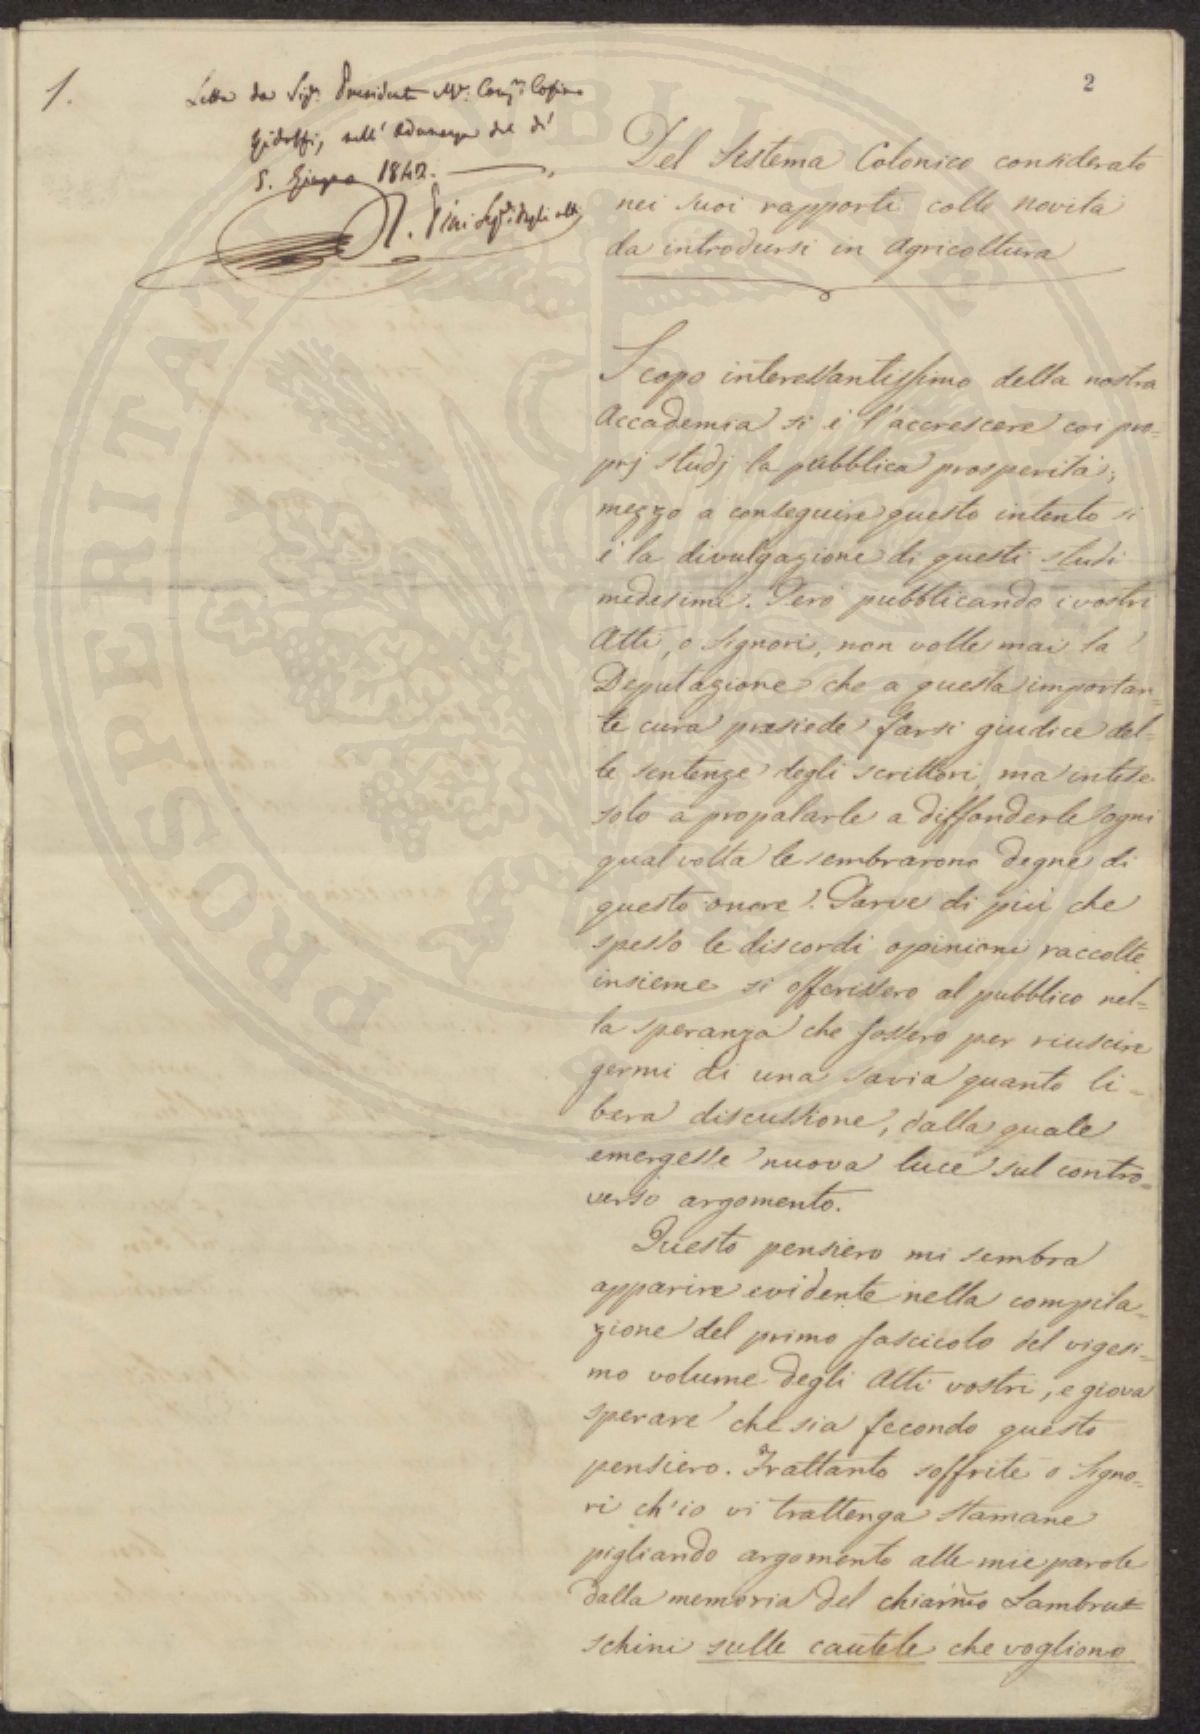 1.
Letta dal Sig.r Presidente M.se Comm.re Cosimo
Ridolfi, nell'Adunanza del dì
5. Giugno 1842.
Segr.i degli atti
2
Del Sistema Colonico considerato
nei suoi rapporti colle novità
da introdursi in Agricoltura
Scopo interessantissimo della nostra
Accademia si è l'accrescere coi pro=
prj studj la pubblica prosperità;
mezzo a conseguire questo intento si
è la divulgazione di questi studi
medesimi. Però pubblicando i vostri
Atti, o Signori, non volle mai la
Deputazione che a questa importan=
te cura presiede farsi giudice del=
le sentenze degli scrittori, ma intese
solo a propalarle a diffonderle ogni
qual volta le sembrarono degne di
questo onore. Parve di più che
spesso le discordi opinioni raccolte
insieme si offerissero al pubblico nel=
la speranza che fossero per riuscire
germi di una savia quanto li=
bera discussione, dalla quale
emergesse nuova luce sul contro=
verso argomento.
Questo pensiero mi sembra
apparire evidente nella compila=
zione del primo fascicolo del vigesi=
mo volume degli Atti vostri, e giova
sperare che sia fecondo questo
pensiero. Frattanto soffrite o Signo=
ri ch'io vi trattenga stamane
pigliando argomento alle mie parole
dalla memoria del chiarmo Lambru=
schini sulle cautele che vogliono
PROSPERITATI PUBLICAE